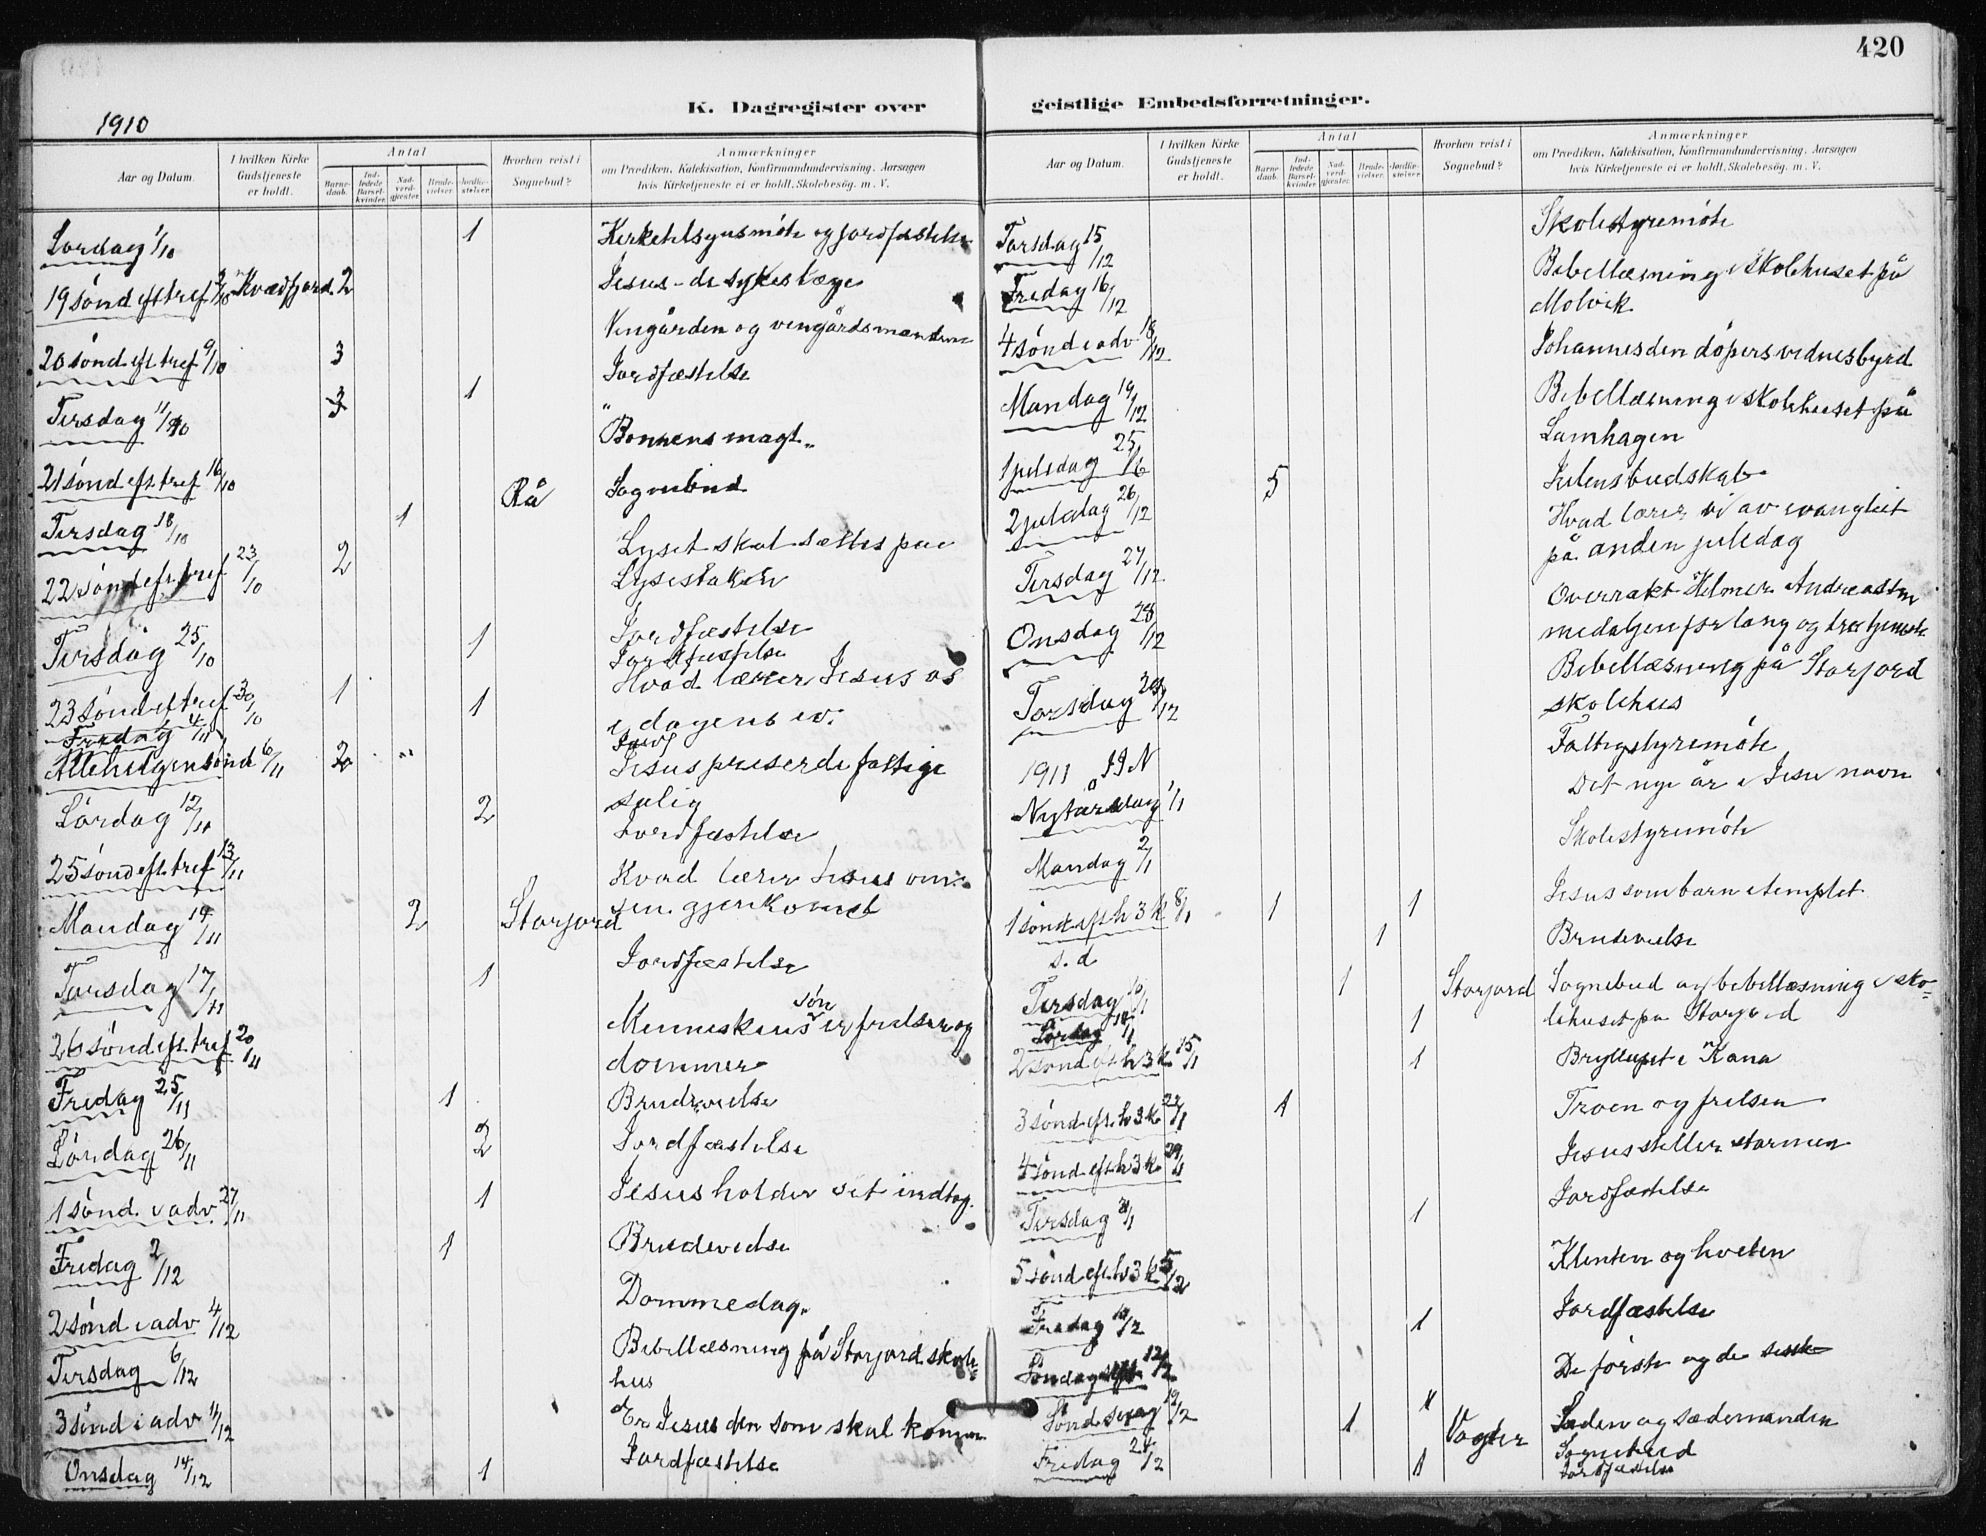 420
K. Dagregister over
geistlige Embedsforretninger.
1910
Aar og Datum.
I hvilken Kirke
Gudstjeneste
er holdt.
Antal
Barne-
daab.
Ind-
ledede
Barsel-
kvinder.
Nad-
verd-
gjester.
Brude-
vielser.
Jordfæ-
stelser.
Hvorhen reist i
Sognebud?
Anmærkninger
om Prædiken, Katekisation, Konfirmandundervisning. Aarsagen
hvis Kirketjeneste ei er holdt. Skolebesög. m. V.
Lördag 1/10 1 Kirketilsynsmöte og jordfæstelse
19 sönd eft tref 2/10 Kvædfjord 2 Jesus - de sykes læge
Vingården og vingårdsmændene
20 sönd eft tref 9/10 3
Jordfæstelse
Tirsdag 11/10 3 1
"Bönnens magt"
21 sönd eft. tref 16/10
Rå Sognebud
Tirsdag 18/10 1
Lyset skal sættes paa
22 sönd eft. tref 23/10 2
Lysestaken
Jordfæstelse
Tirsdag 25/10 1
Jordfæstelse
Hvad lærer Jesus os
23 sönd eft tref 30/10 1 1
i dagens ev.
Fredag 4/11
Allehelgensönd 6/11 2 "
Jesus priser de fattige
salig
Lördag 12/11 2
Jordfæstelse
25 sönd eft. tref 13/11
Hvad lærer Jesus om
sin gjenkomst
Mandag 14/11 2 Storjord
Jordfæstelse
Torsdag 17/11 1
Menneskens sön er frelser og
26 sönd eft. tref 20/11
dommer
Fredag 25/11 1 Brudevielse
Lördag 26/11 2 Jordfæstelse
1 sönd i adv 27/11 1 Jesus holder sit indtog.
Fredag 2/12 1 Brudevielse
Dommedag.
2 sönd i adv 4/12
Bibellæsning på Storjord skole-
Tirsdag 6/12 hus
3 sönd i adv 11/12 Er Jesus den som skal komme
Onsdag 14/12 1 Jordfæstelse
Aar og Datum.
I hvilken Kirke
Gudstjeneste
er holdt.
Antal
Barne-
daab.
Ind-
ledede
Barsel-
kvinder.
Nad-
verd-
gjester.
Brude-
vielser.
Jordfæ-
stelser.
Hvorhen reist i
Sognebud?
Anmærkninger
om Prædiken, Katekisation, Konfirmandundervisning. Aarsagen
hvis Kirketjeneste ei er holdt. Skolebesög. m. V.
Torsdag 15/12 Skolestyremöte
Fredag 16/12 Bibellæsning i skolehuset på
Molvik
4 sönd i adv 18/12 Johannes den döpers vidnesbyrd
Mandag 19/12 Bibellæsning i skolehuset på
Lamhagen
1 juledag 25/12 5 Julens budskab
2 juledag 26/12 Hvad lærer vi av evangliet
på anden juledag
Tirsdag 27/12 Overrakt Hilmer Andreassen
medaljen for lang og tro tjeneste
Onsdag 28/12
Bibellæsning på Storjord
skolehus
Torsdag 29/12
Fattigstyremöte
1911 I J N
Det nye år i Jesu navn
Nytårsdag 1/1
Skolestyremöte
Mandag 2/1
Jesus som barn i templet
1 sönd eft h 3 k 8/1 1 1
s. d 1 Brudevielse
Tirsdag 10/1 1 Storjord Sognebud og bibellæsning i sko-
lehuset på Storjord
Lördag 14/1 1
2 sönd eft h 3 k 15/1 1 Bryllupet i Kana
3 sönd eft. h 3 k 22/1 1 Troen og frelsen
4 sönd eft h 3 k 29/1 Jesus stiller stormen
Tirsdag 31/1 1 Jordfæstelse
5 sönd eft. h 3 k 5/2 Klinten og hveten
Fredag 10/2 1 Jordfæstelse
Söndag 12/2 De förste og de siste
Sönd 19/2 1 Sæden og sædemanden
Vogter Sognebud
Fredag 24/2 1 Jordfæstelse